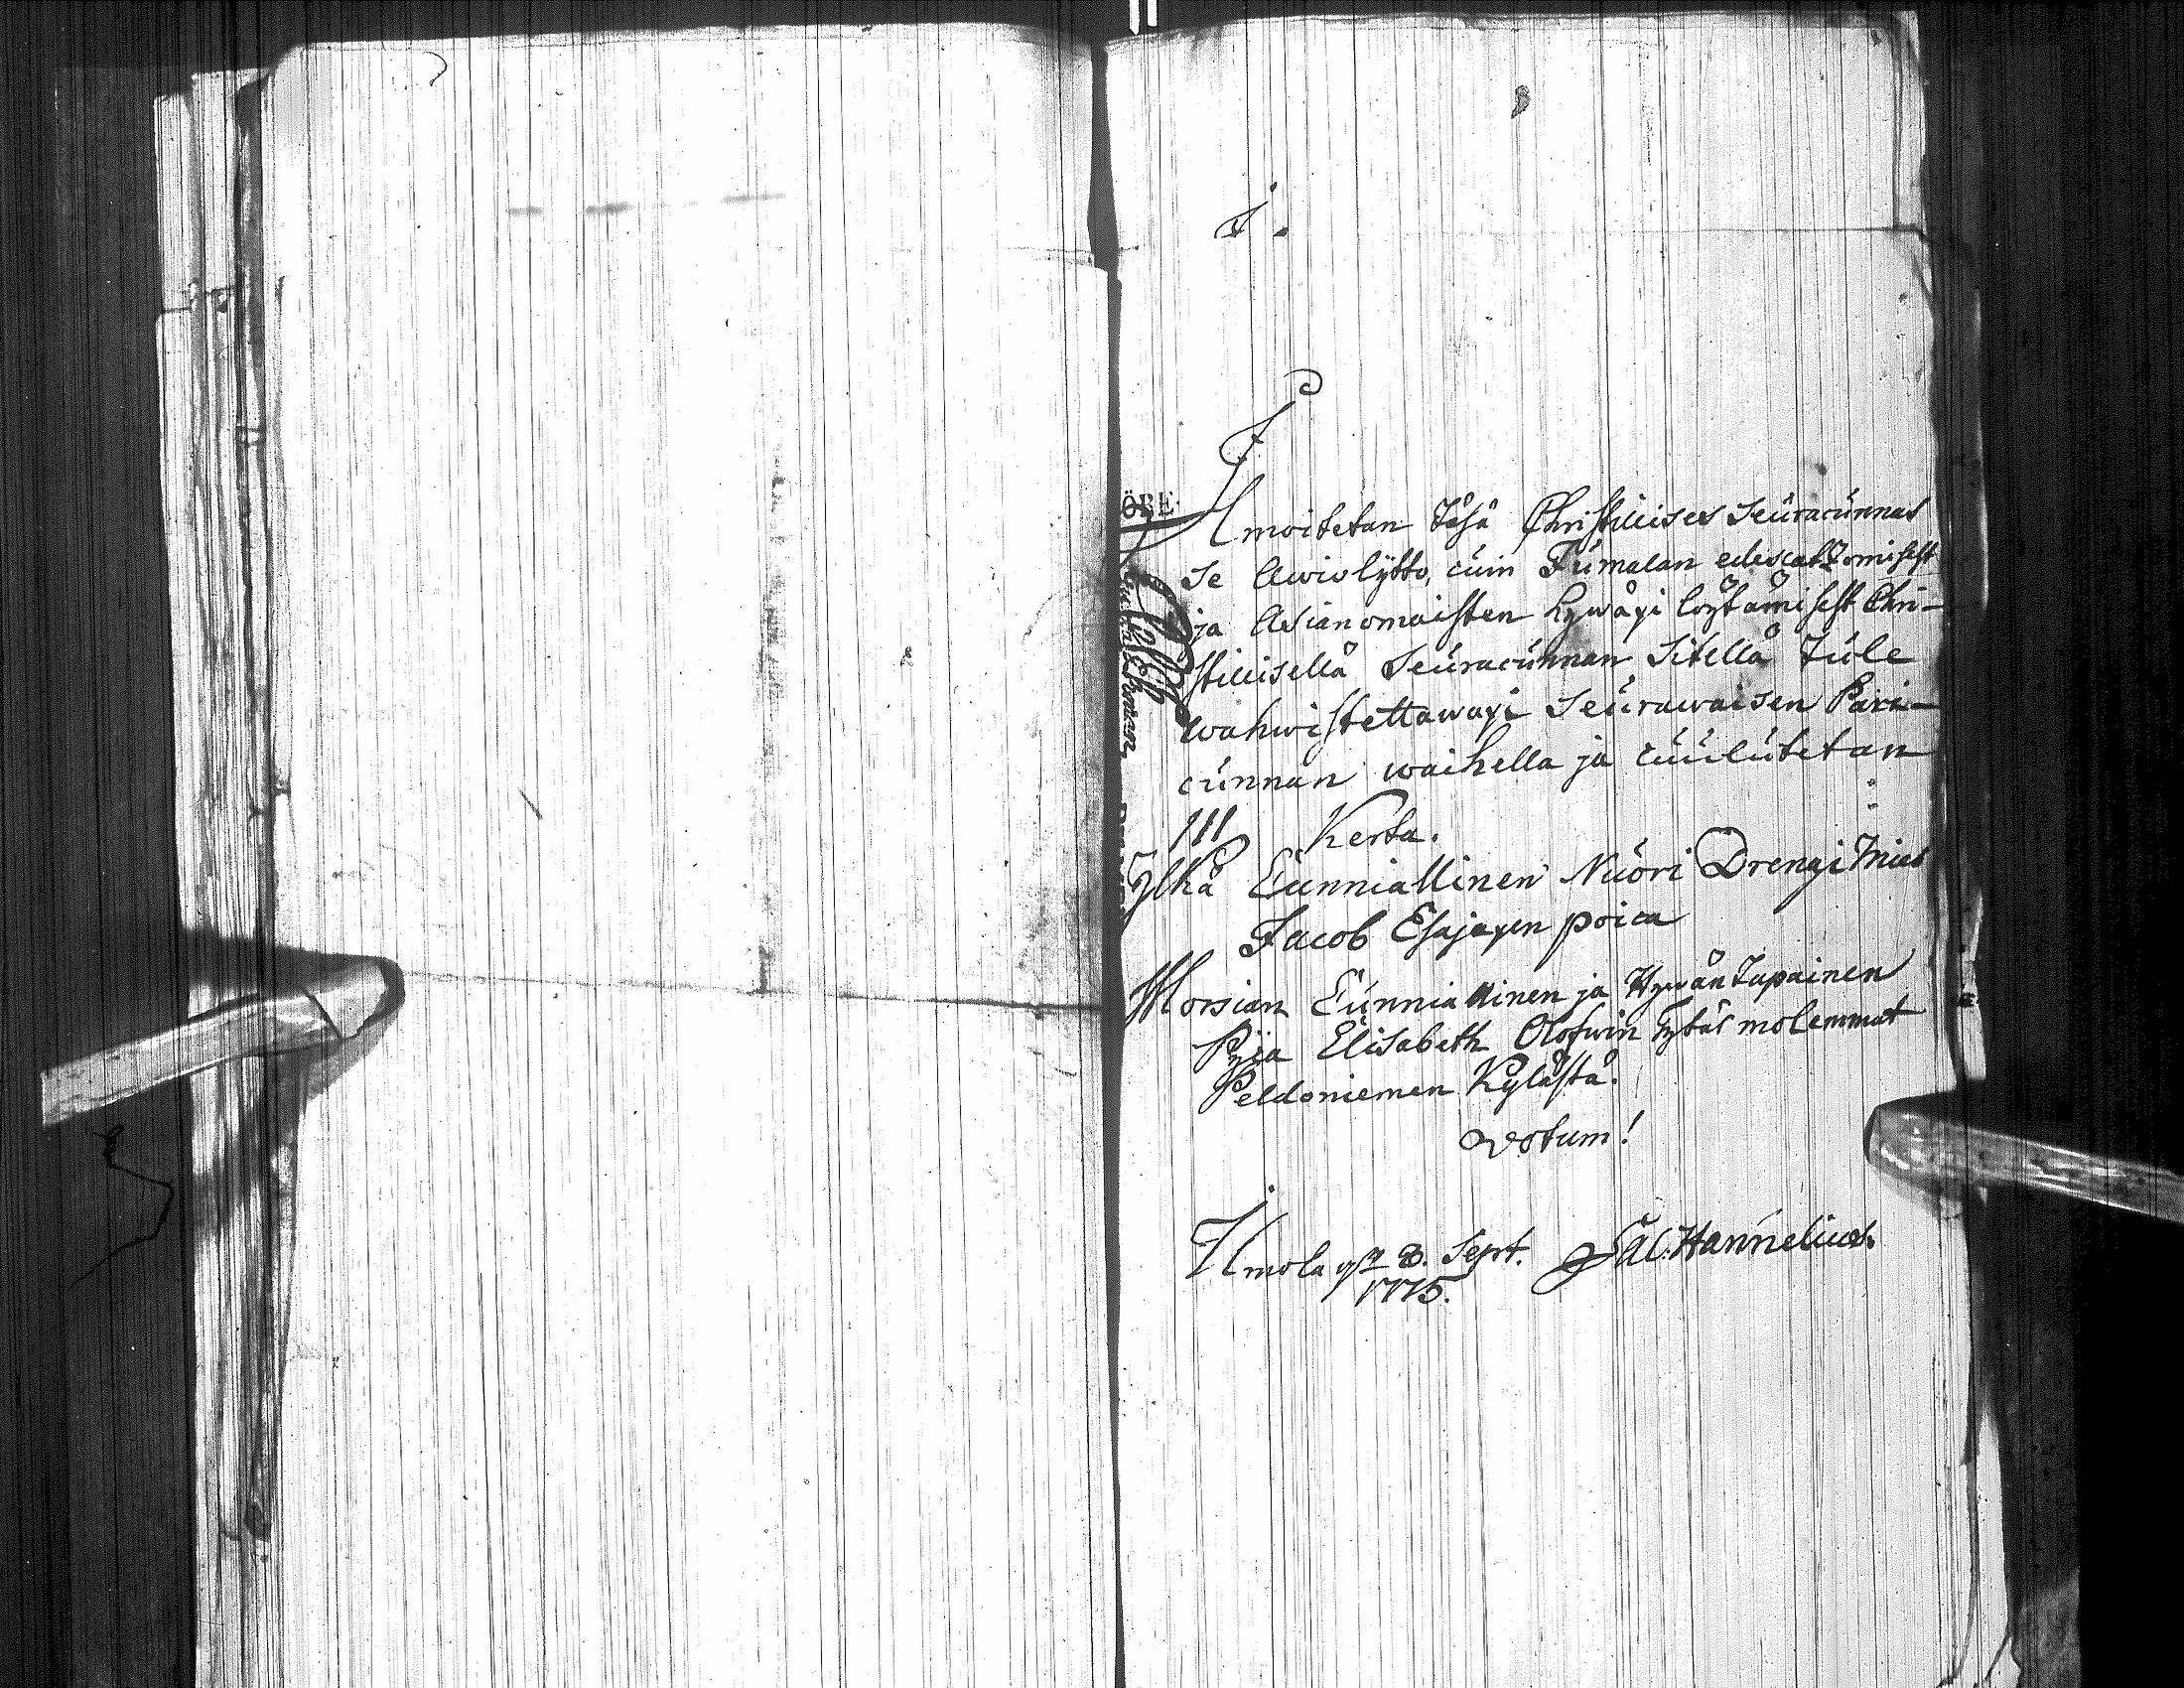 I.
Ilmoitetan Täsä Christillises Seuracunnas
se Awiolijtto, cuin Jumalan edescatzomisest
ja Asianomaisten hywäxi löytämisest Chri-
stillisellä Seuracunnan Sitellä Tule
wahwistettawaxi Seurawaisen Paris-
cunnan waihella ja cuulutetan
III Kerta.
Ylkä Cunniallinen Nuori Drengi Mies
Jacob Esajaxen poica
Morsian Cunniallinen ja Hywäntapainen
Pijca Elisabeth Olofwin Tytär molemmat
Peldoniemen Kylästä.
Votum!
Ilmola 8. Sept. Sal: Hannelius.
1775.
ÖRE